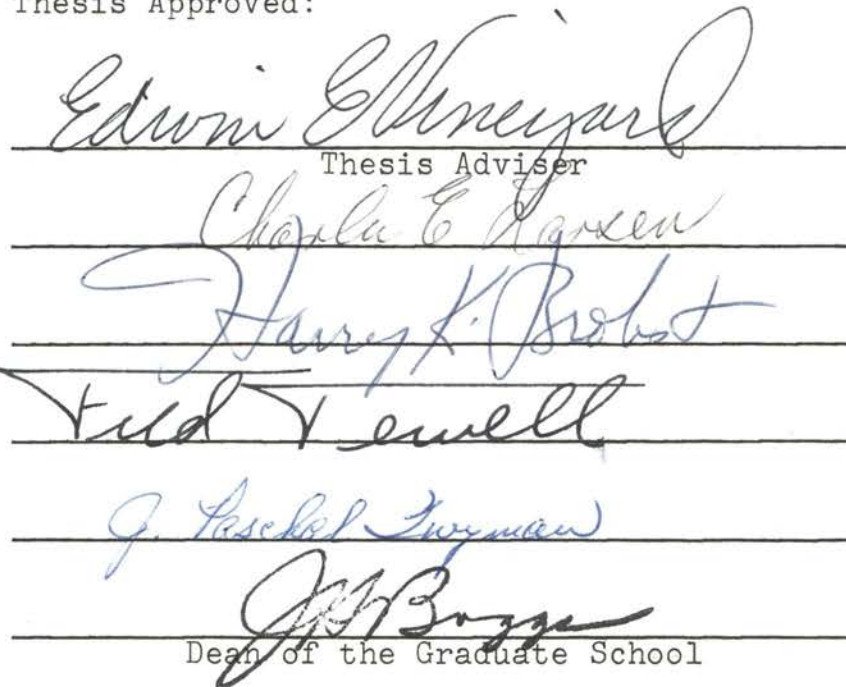 Thesis Approved:
Edwin E Vineyard
Thesis Adviser
Charles E Larsen
Harry K. Brobst
Fred Tewell
J. Paschal Twyman
J H Boggs
Dean of the Graduate School